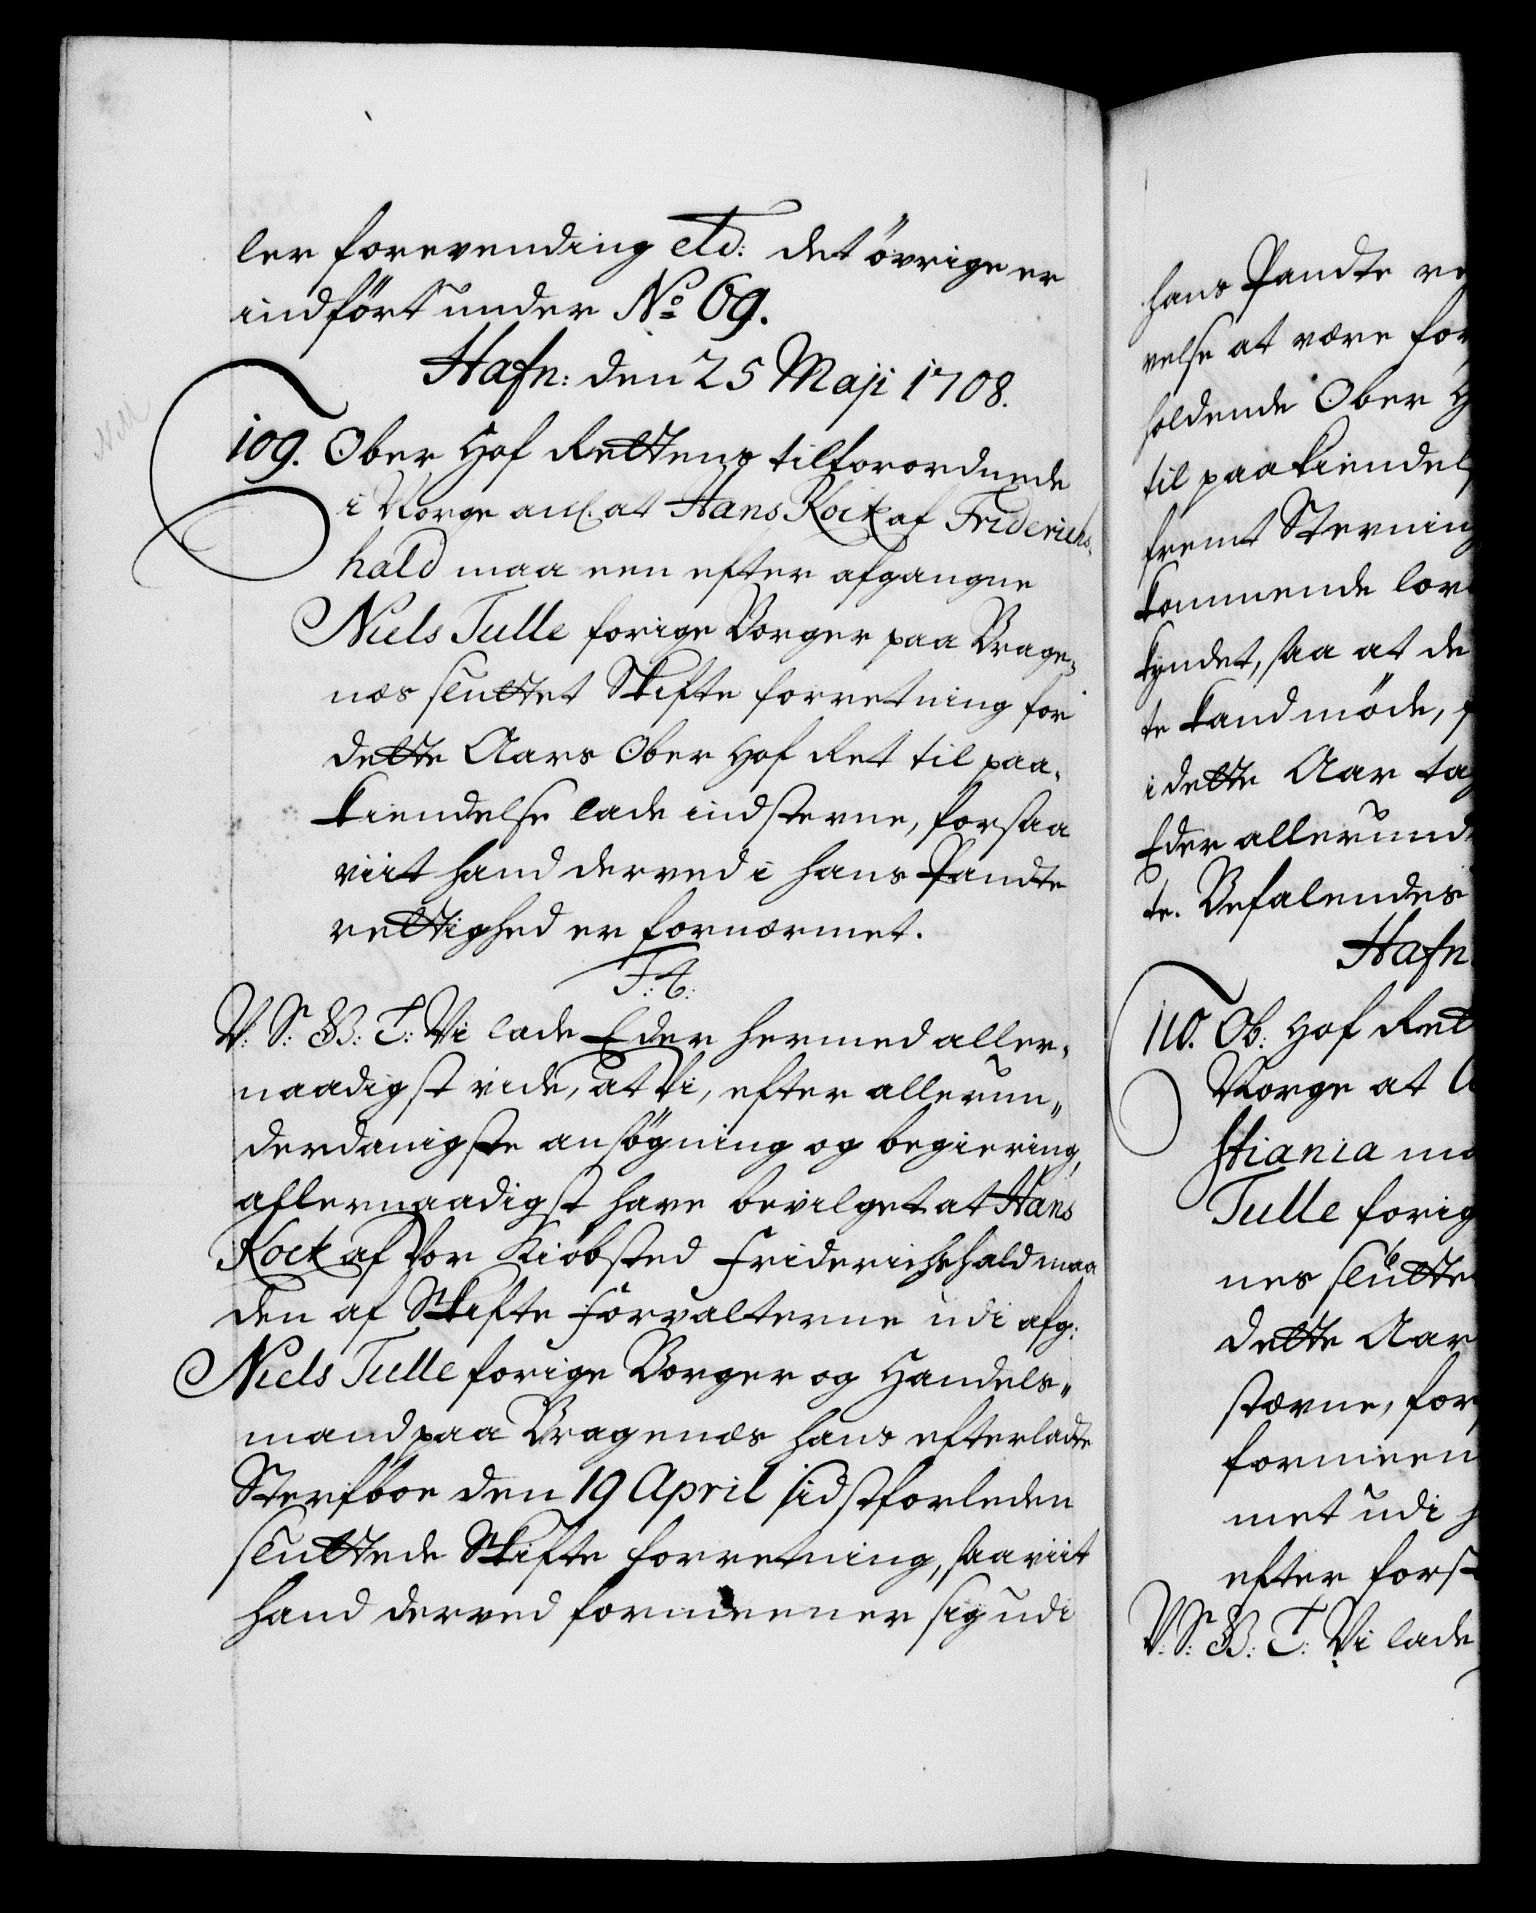 ler forevending etc: det övrige er
indfört under No 69.
Hafn: den 25 Maji 1708.
109. Ober Hof Rettens tilforordnede
i Norge anl. at Hans Kock af Friderichs-
hald maa een efter afgangne
Niels Tulle forige Borger paa Brage-
næs sluttet Skifte forretning for
dette Aars Ober Hof Ret til paa-
kiendelse lade indsterne, forsaa
viit hand derved i hans Pandte
rettighed er fornærmet.
F: 4:
V: S: G: B: T: Vi lade Eder hermed aller-
naadigst vide, at Vi, efter allerun-
derdanigste ansögning og begiering,
allernaadigst have bevilget at Hans
Kock af Vor Kiöbsted Friderichshald maa
den af Skifte Forvalterne udi afg:
Niels Tulle forige Borger og Handels-
mand paa Bragenæs hans efterladte
Sterfboe den 19 April sidstforleden
sluttede Skifte forretning, saaviit
hand derved formeener sig udi
hans Pandte re
velse at være for
holdende Ober H
til paakiendel
fremt Sterning
kommende lov
kyndet, saa at de
te kand möde,
i dette Aar ta
Eder allerund
te. Befalendes
Hafn
110. Ob: Hof Ret
Norge at
stiania ma
Tulle forig
nes slutte
dette Aar
stævne, for
formeen
met udi h
efter forst
V: S: G: B: T: Vi lade